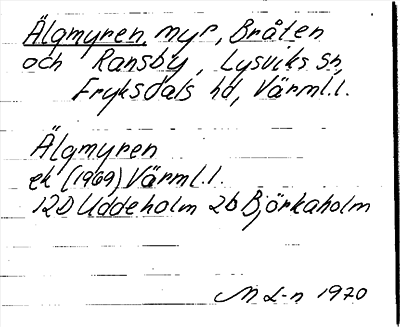 Älgmyren, myr, Bråten
och Ransby, Lysviks sn,
Fryksdals hd, Värml.l.
Älgmyren
ek (1969) Värml.l.
12D Uddeholm 2b Björkaholm
M L-n 1970